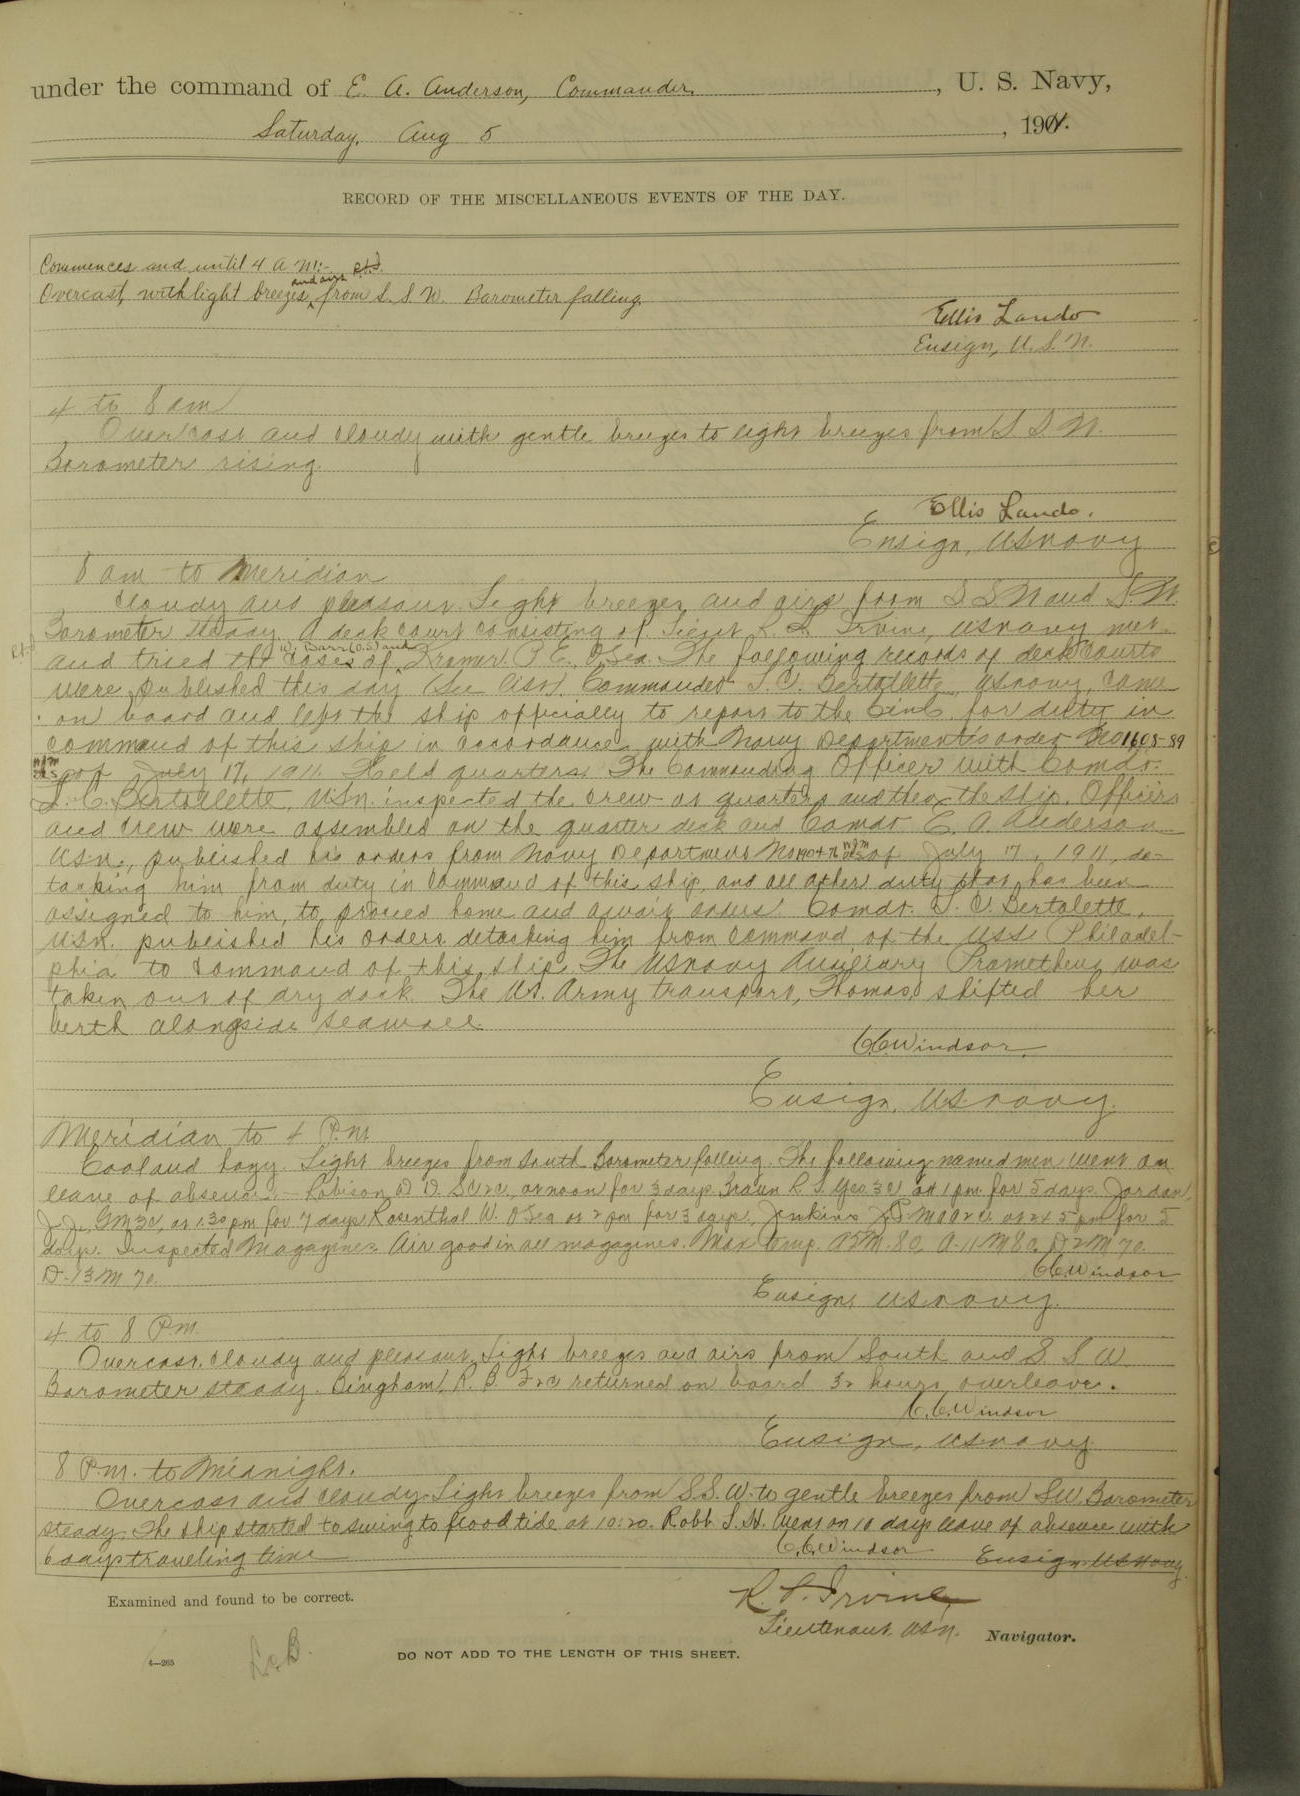 under the command of E. A. Anderson, Commander, , U. S. Navy,
Saturday, Aug 5 , 191
RECORD OF THE MISCELLANEOUS EVENTS OF THE DAY.
Commences and until 4 A M:-
Overcast, with light breezes and airs from S. S. W. Barometer falling.
Ellis Lando
Ensign, U. S. N.
4 to 8 am
Overcast and cloudy with gentle breezes to light breezes from S S W.
Barometer rising.
Ellis Lando.
Ensign, US Navy
8 am to Meridian
Cloudy and pleasant. Light breezes and airs from S S W and S. W.
Barometer steady. A deck court consisting of Lieut R. L. Irvine, US navy met
and tried the cases of W. Barr (O.S) and Kramer P. E. O Sea. The following records of deck courts
were published this day (See). Commander L. C. Bertollette, US navy, came
on board and left the ship officially to report to the CinC for duty in
command of this ship in accordance with Navy Department's order No 1608-89
of July 17, 1911. Held quarters. The Commanding Officer with Comdr.
L. C. Bertollette, USN. inspected the crew at quarters and then the ship. Officers
and crew were assembled on the quarter deck and Comdr E. A. Anderson
USN., published his orders from Navy Department No of July 17, 1911, de-
taching him from duty in command of this ship, and all other duty that has been
assigned to him, to proceed home and await orders. Comdr. L. C. Bertolette,
USN. published his orders detaching him from command of the USS Philadel-
phia to command of this ship. The US navy Auxiliary Prometheus was
taken out of dry dock. The US. Army transport, Thomas, shifted her
berth alongside seawall.
C.C. Windsor
Ensign, US navy.
Meridian to 4 P.M
Cool and hazy. Light breezes from South. Barometer falling. The following named men went on
leave of absence:- Robison D. D. Sea2c, at noon for 3 days. Braun R. S. Yeo 3c at 1 pm for 5 days. Jordan,
J. J., GM3c, at 1.30 pm for 7 days. Rosenthal W. O Sea at 2 pm for 3 days, Jenkins at 2.45 pm for 5
days. Inspected Magazines. Air good in all magazines. Max temp A5M. 80, A-11 M 80. D2M 70.
D-13M 70.
C.C. Windsor
Ensign, US navy.
4 to 8 P.M.
Overcast, cloudy and pleasant. Light breezes and airs from South and S S W
Barometer steady. Bingham, R. B. F2c returned on board 32 hours overleave.
C.C. Windsor
Ensign, US navy
8 P.M. to Midnight.
Overcast and cloudy. Light breezes from S.S.W. to gentle breezes from SW. Barometer
steady. The ship started to swing to flood tide at 10:20. Robb L. H. went on 10 days leave of absence with
6 days traveling time
C.C. Windsor
Ensign US Navy
Examined and found to be correct.
R. L. Irvine,
Lieutenant, USN. Navigator.
4—265
L.C.B.
DO NOT ADD TO THE LENGTH OF THIS SHEET.